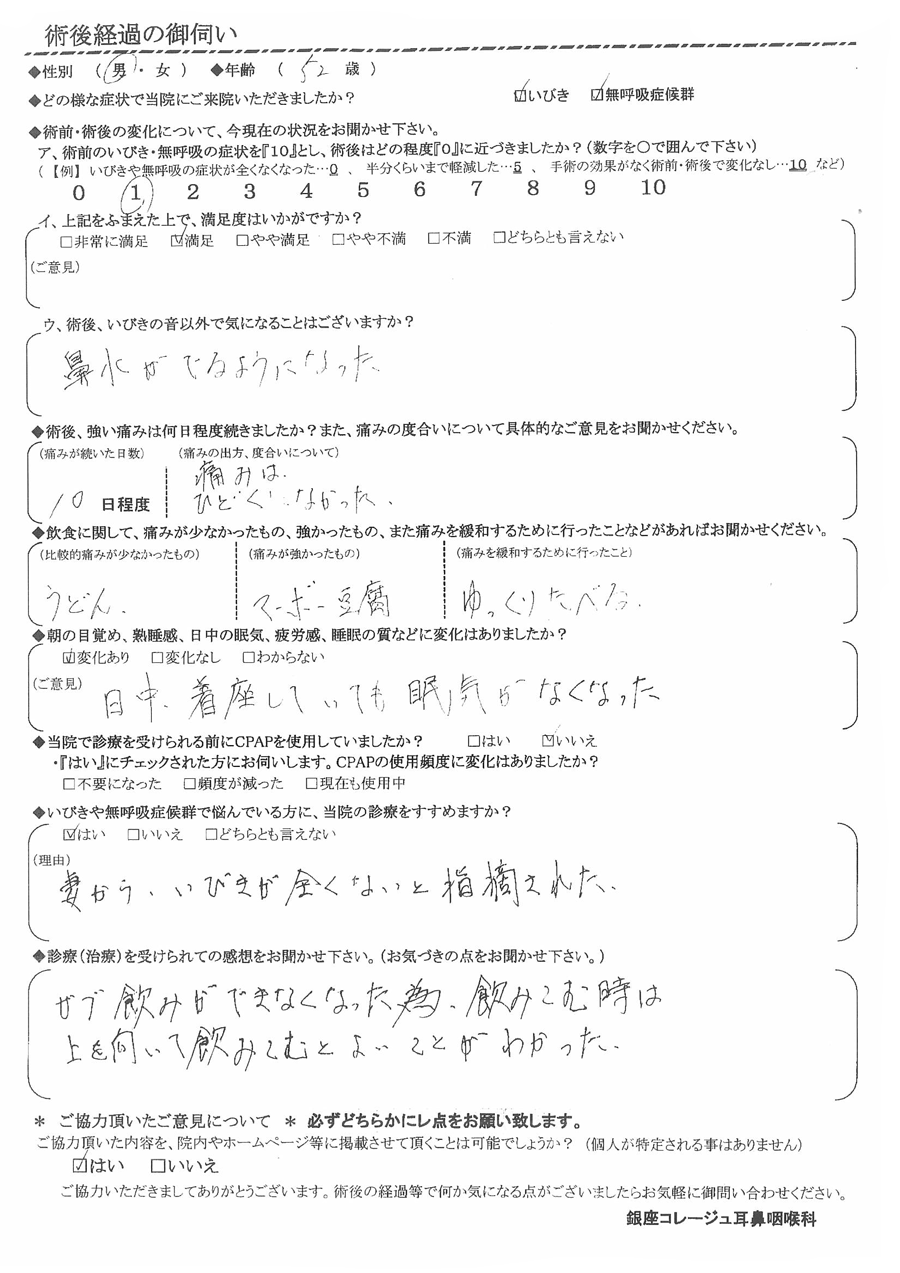 術後経過の御伺い
◆性別 （ 男 ・ 女 ） ◆年齢 （ 52 歳 ）
◆どの様な症状で当院にご来院いただきましたか？ ☑いびき ☑無呼吸症候群
◆術前・術後の変化について、今現在の状況をお聞かせ下さい。
ア、術前のいびき・無呼吸の症状を『10』とし、術後はどの程度『0』に近づきましたか？（数字を〇で囲んで下さい）
（【例】いびきや無呼吸の症状が全くなくなった…0 、 半分くらいまで軽減した…5 、 手術の効果がなく術前・術後で変化なし…10 など）
0 1 2 3 4 5 6 7 8 9 10
イ、上記をふまえた上で、満足度はいかがですか？
□非常に満足 ☑満足 □やや満足 □やや不満 □不満 □どちらとも言えない
(ご意見)
ウ、術後、いびきの音以外で気になることはございますか？
鼻水がでるようになった
◆術後、強い痛みは何日程度続きましたか？また、痛みの度合いについて具体的なご意見をお聞かせください。
(痛みが続いた日数) (痛みの出方、度合いについて)
痛みは
10 日程度 ひどくはなかった、
◆飲食に関して、痛みが少なかったもの、強かったもの、また痛みを緩和するために行ったことなどがあればお聞かせください。
(比較的痛みが少なかったもの) (痛みが強かったもの) (痛みを緩和するために行ったこと)
うどん、 マーボー豆腐 ゆっくりたべる、
◆朝の目覚め、熟睡感、日中の眠気、疲労感、睡眠の質などに変化はありましたか？
☑変化あり □変化なし □わからない
(ご意見) 日中、着座していても眠気がなくなった
◆当院で診療を受けられる前にCPAPを使用していましたか？ □はい ☑いいえ
・『はい』にチェックされた方にお伺いします。CPAPの使用頻度に変化はありましたか？
□不要になった □頻度が減った □現在も使用中
◆いびきや無呼吸症候群で悩んでいる方に、当院の診療をすすめますか？
☑はい □いいえ □どちらとも言えない
(理由)
妻から、いびきが全くないと指摘された、
◆診療（治療）を受けられての感想をお聞かせ下さい。（お気づきの点をお聞かせ下さい。）
ガブ飲みができなくなった為、飲みこむ時は
上を向いて飲みこむとよいことがわかった、
＊ ご協力頂いたご意見について ＊ 必ずどちらかにレ点をお願い致します。
ご協力頂いた内容を、院内やホームページ等に掲載させて頂くことは可能でしょうか？（個人が特定される事はありません）
☑はい □いいえ
ご協力いただきましてありがとうございます。術後の経過等で何か気になる点がございましたらお気軽に御問い合わせください。
銀座コレージュ耳鼻咽喉科